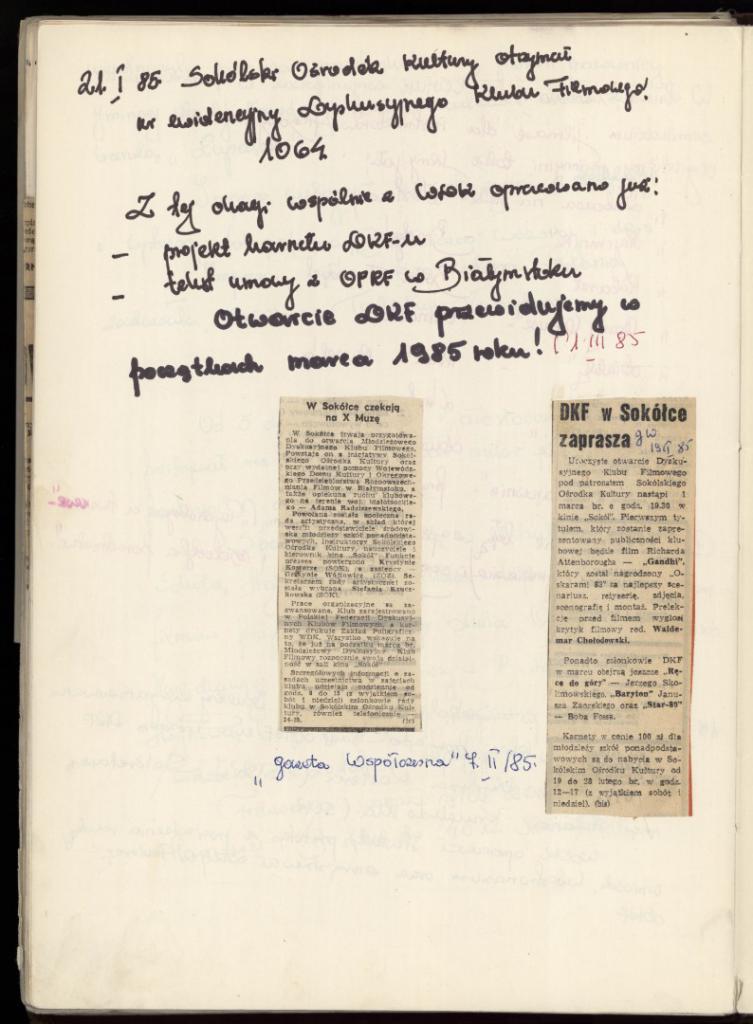 21 I 85 Sokólski Ośrodek Kultury otrzymał
nr ewidencyjny Dyskusyjnego Klubu Filmowego!
1064
Z tej okazji wspólnie z opracowano już:
- projekt karnetu DKF-u
- tekst umowy z OPRF w Białymstoku
Otwarcie DKF przewidujemy w
początkach marca 1985 roku! (1 III 85
W Sokółce czekają
na X Muzę
W Sokółce trwają przygotowa-
nia do otwarcia Młodzieżowego
Dyskusyjnego Klubu Filmowego.
Powstaje on z inicjatywy Sokól-
skiego Ośrodka Kultury oraz
przy wydatnej pomocy Wojewódz-
kiego Domu Kultury i Okręgowe-
go Przedsiębiorstwa Rozpowszech-
niania Filmów w Białymstoku, a
także opiekuna ruchu klubowe-
go na terenie woj. białostockie-
go — Adama Radziszewskiego.
Powołana została społeczna ra-
da artystyczna, w skład której
weszli przedstawiciele środowi-
ska młodzieży szkół ponadpodsta-
wowych, instruktorzy Sokólskiego
Ośrodka Kultury, nauczyciele i
kierownik kina „Sokół". Funkcję
prezesa powierzono Krystynie
(SOK), a zastępcy —
Grażynie (ZOZ). Se-
kretarzem rady artystycznej zo-
stała wybrana Stefania
(SOK).
Prace organizacyjne są za-
awansowane. Klub zarejestrowano
w Polskiej Federacji Dyskusyj-
nych Klubów Filmowych, a kar-
nety drukuje Zakład Poligraficz-
ny WDK. Wszystko wskazuje na
to, że już na początku marca br.
Młodzieżowy Dyskusyjny Klub
Filmowy rozpocznie swoją działal-
ność w sali kina „Sokół".
Szczegółowych informacji o za-
sadach uczestnictwa w zajęciach
klubu udzielają codziennie od
godz. 8 do 15 (z wyjątkiem so-
bót i niedziel) członkowie rady
klubu w Sokólskim Ośrodku Kul-
tury, również telefonicznie —
„Gazeta Współczesna" 7. II/85.
DKF w Sokółce
zaprasza GW
19 II 85
Uroczyste otwarcie Dysku-
syjnego Klubu Filmowego
pod patronatem Sokólskiego
Ośrodka Kultury nastąpi 1
marca br. o godz. 19.30 w
kinie „Sokół". Pierwszym ty-
tułem, który zostanie zapre-
zentowany publiczności klu-
bowej będzie film Richarda
Attenborougha — „Gandhi",
który został nagrodzony „O-
skarami 83" za najlepszy sce-
nariusz, reżyserię, zdjęcia,
scenografię i montaż. Prelek-
cję przed filmem wygłosi
krytyk filmowy red. Walde-
mar Chołodowski.
Ponadto członkowie DKF
w marcu obejrzą jeszcze „Rę-
ce do góry" — Jerzego Sko-
limowskiego, „Baryton" Janu-
sza Zaorskiego oraz „Star-80"
— Boba Fosse.
Karnety w cenie 100 zł dla
młodzieży szkół ponadpodsta-
wowych są do nabycia w So-
kólskim Ośrodku Kultury od
19 do 28 lutego br. w godz.
12—17 (z wyjątkiem sobót i
niedziel). (his)